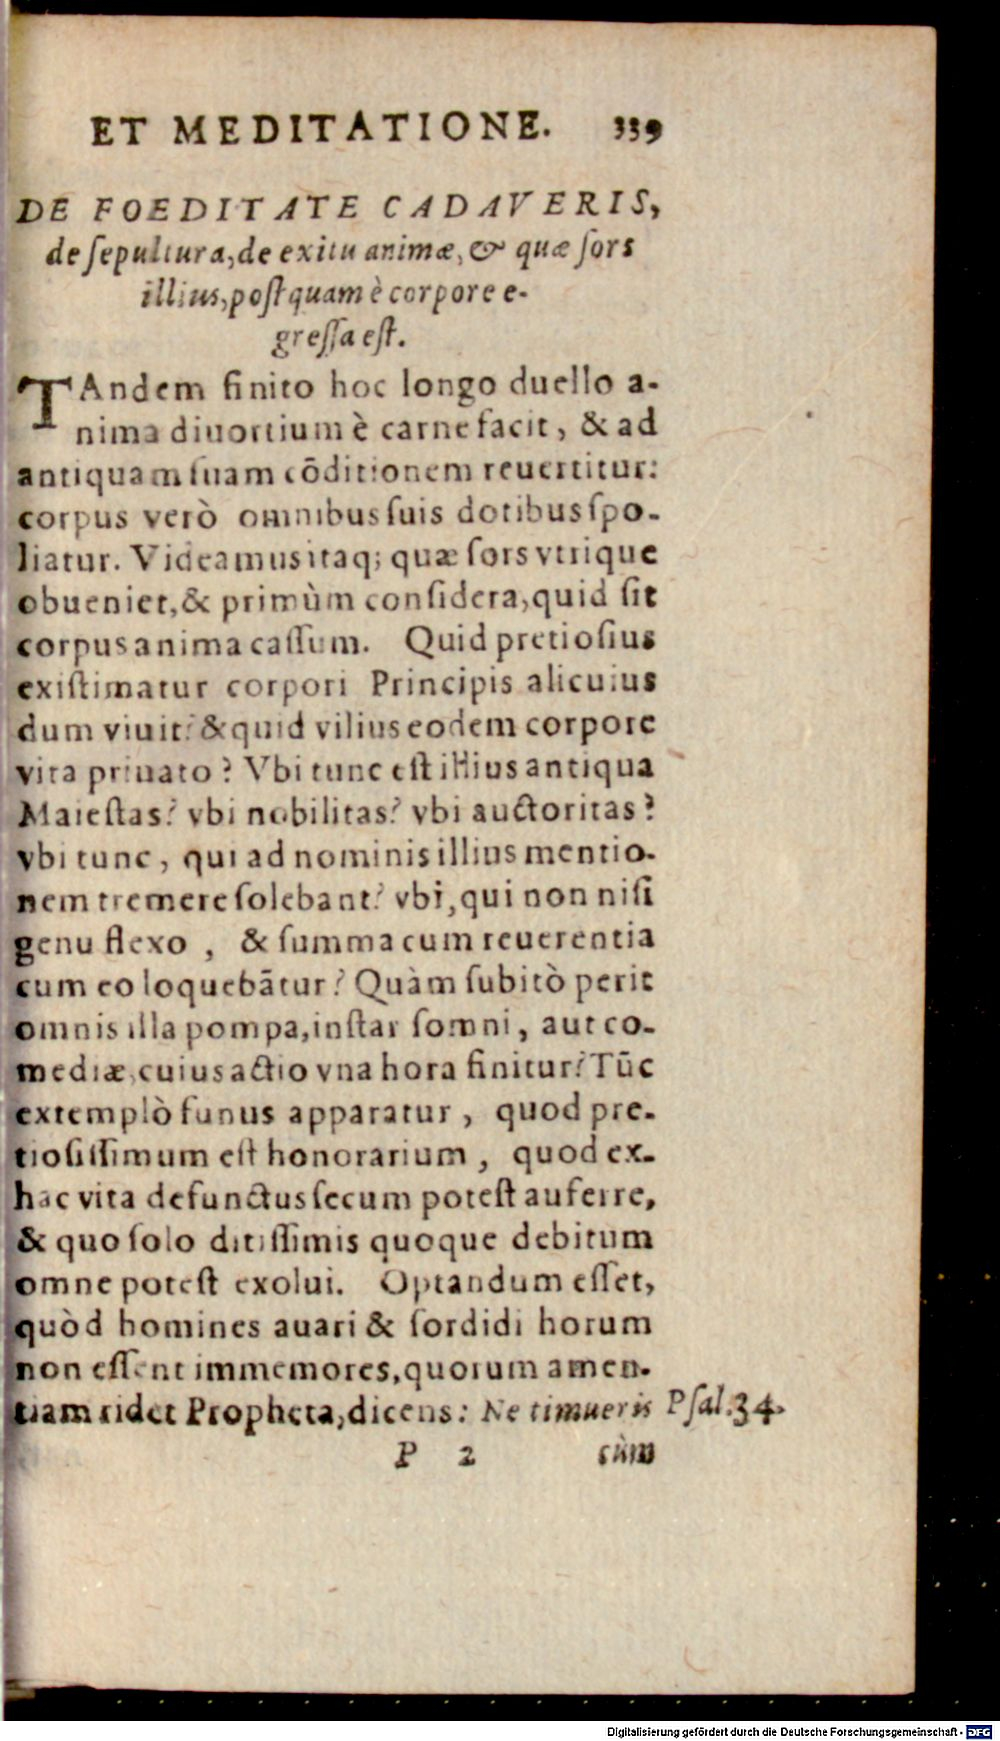 ET MEDITATIONE. 339
DE FOEDITATE CADAVERIS,
de ſepultura, de exitu animæ, & quæ ſors
illius, poſtquam è corpore e-
greſſa eſt.
TAndem finito hoc longo duello a-
nima diuortium è carne facit, & ad
antiquam ſuam cōditionem reuertitur:
corpus verò omnibus ſuis dotibus ſpo-
liatur. Videamus itaq; quæ ſors vtrique
obueniet, & primùm conſidera, quid ſit
corpus anima caſſum. Quid pretioſius
exiſtimatur corpori Principis alicuius
dum viuit? & quid vilius eodem corpore
vita priuato? Vbi tunc eſt illius antiqua
Maieſtas? vbi nobilitas? vbi auctoritas?
vbi tunc, qui ad nominis illius mentio-
nem tremere ſolebant? vbi, qui non niſi
genu flexo, & ſumma cum reuerentia
cum eo loquebātur? Quàm ſubitò perit
omnis illa pompa, inſtar ſomni, aut co-
mediæ, cuius actio vna hora finitur? Tūc
extemplò funus apparatur, quod pre-
tioſiſſimum eſt honorarium, quod ex-
hac vita defunctus ſecum poteſt auferre,
& quo ſolo ditiſſimis quoque debitum
omne poteſt exolui. Optandum eſſet,
quòd homines auari & ſordidi horum
non eſſent immemores, quorum amen-
tiam ridet Propheta, dicens: Ne timueris Pſal. 34.
P 2 cùm
Digitalisierung gefördert durch die Deutsche Forschungsgemeinschaft - DFG